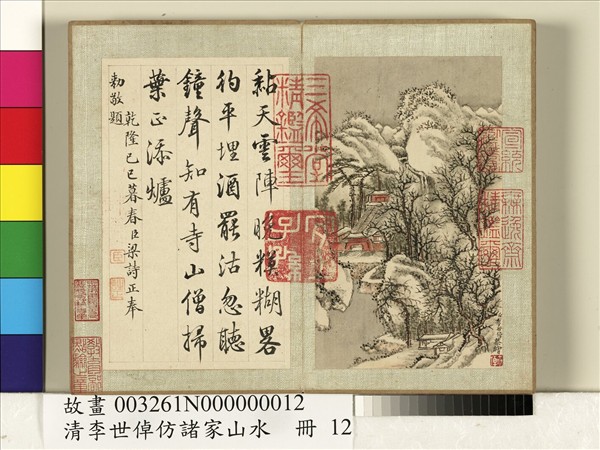 黏天雲陣晚糢糊畧
彴平埋酒罷沽忽聽
鐘聲知有寺山僧掃
葉正添爐
乾隆己巳暮春臣梁詩正奉
勅敬題
三希堂
精鑑璽
宜子孫
故畫 003261N000000012
清李世倬仿諸家山水 冊 12